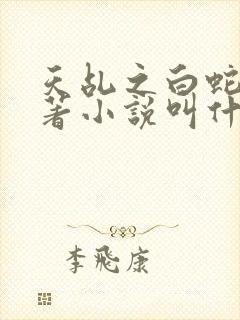 天乱之白蛇
著小說叫什
李飛康